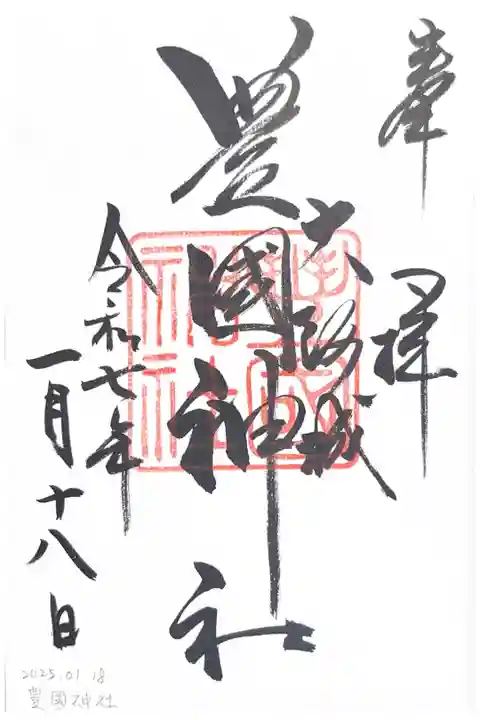 奉拝
大阪城
豊國神社
令和七年
一月十八日
2025.01.18
豊國神社